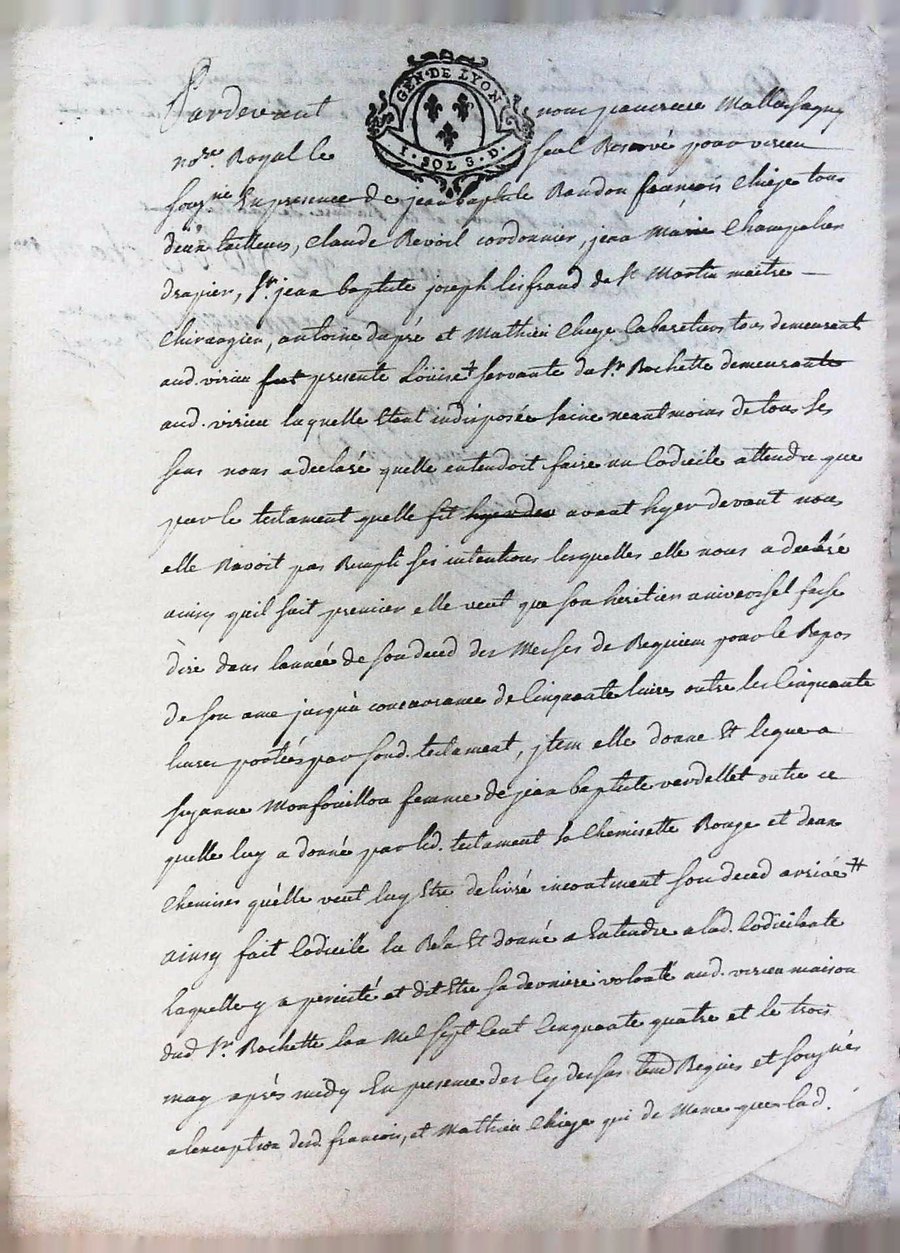 GEN·DE LYON
1·SOL 8·D·
Pardevant nous
nore Royal le seul Reservé pour virieu
sousgne En presence de jean baptiste Baudou francois Chieze tous
deux tailleurs, Claude Revoil cordonnier, jean Marie Champalier
drapier, Sr. jean baptiste joseph lisfrand de St Martin maitre
Chirurgien, antoine dupré et Mathieu Chieze Cabaretiers tous demeurant
aud. virieu fut presente Louise servante du Sr. Rochette demeurante
aud. virieu laquelle Etent indisposée saine neantmoins de tous ses
sens nous a declaré quelle entendoit faire un Codicile attendu que
par le testament quelle fit avant hyer devant nous
elle Navoit pas Rempli ses intentions lesquelles elle nous a declaré
ainsy quil suit premier elle veut que son heritier universel fasse
dire dans lannée de son deced des Messes de Requiem pour le Repos
de son ame jusqua concurrance de Cinquante livres outre les Cinquante
livres portées par sond. testament, jtem elle donne Et legue a
suzanne Monfouillou femme de jean baptiste verdellet outre ce
quelle luy a donné par led. testament sa Chemisette Rouge et deux
Chemises quelle veut luy Etre delivré incontinent son deced arrivé
ainsy fait Codicille lu Relu Et donné a Entendre a lad. Codicilante
laquelle y a persisté et dit Etre sa derniere volonté aud. virieu maison
dud Sr. Rochette lan Mil sept Cent Cinquante quatre et le trois
may après midy En presence des Cy dessus temd Requis et sousnés
a lexception desd. francois, et Mathieu Chieze qui de Meme que lad.